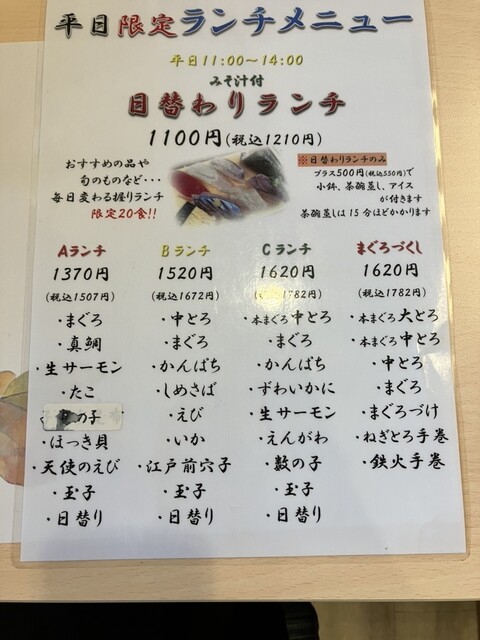 平日限定ランチメニュー
平日11:00〜14:00
みそ汁付
日替わりランチ
1100円(税込1210円)
おすすめの品や
旬のものなど・・・
毎日変わる握りランチ
限定20食!!
※日替わりランチのみ
プラス500円(税込550円)で
小鉢、茶碗蒸し、アイス
が付きます
茶碗蒸しは15分ほどかかります
Aランチ
1370円
(税込1507円)
・まぐろ
・真鯛
・生サーモン
・たこ
の子
・ほっき貝
・天使のえび
・玉子
・日替り
Bランチ
1520円
(税込1672円)
・中とろ
・まぐろ
・かんぱち
・しめさば
・えび
・いか
・江戸前穴子
・玉子
・日替り
Cランチ
1620円
(税込1782円)
・本まぐろ中とろ
・まぐろ
・かんぱち
・ずわいかに
・生サーモン
・えんがわ
・数の子
・玉子
・日替り
まぐろづくし
1620円
(税込1782円)
・本まぐろ大とろ
・本まぐろ中とろ
・中とろ
・まぐろ
・まぐろづけ
・ねぎとろ手巻
・鉄火手巻